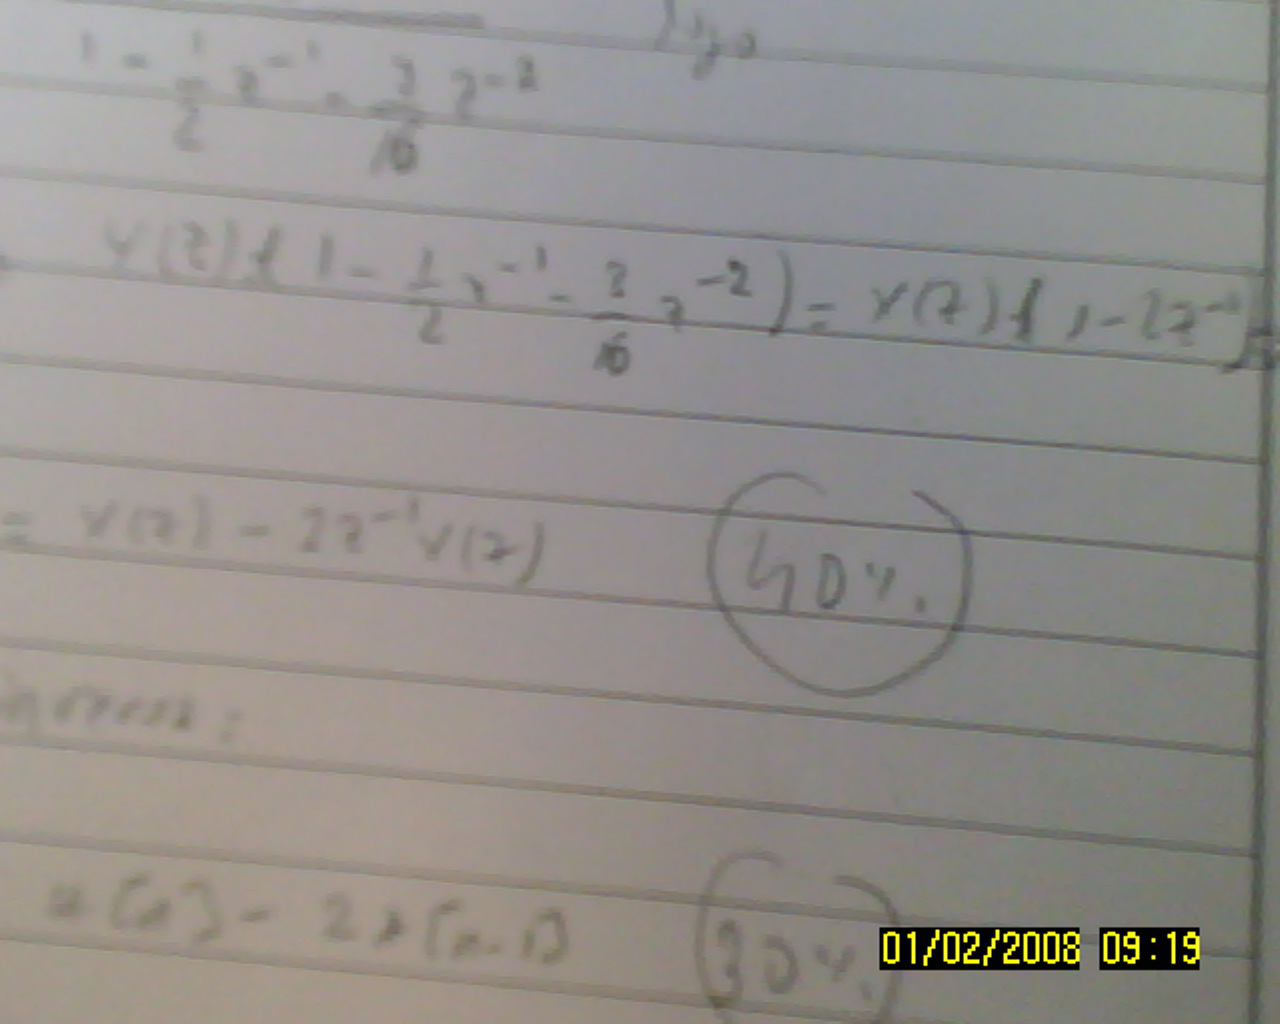 1 - 1/2 z^-1 - 3/16 z^-2
Y(z){ 1 - 1/2 z^-1 - 3/16 z^-2 ) = X(z){ 1 - 2z^-1
= X(z) - 2z^-1 X(z)
40%.
x[n] - 2x[n-1]
30%.
01/02/2008 09:19